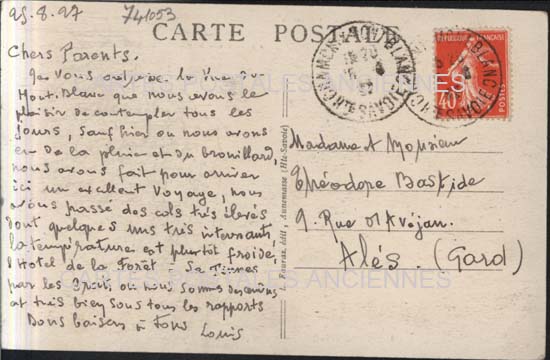 25.8.27
741053
CARTE POSTALE
Chers Parents.
Je vous adresse la vue du
Mont. Blanc que nous avons le
plaisir de contempler tous les
jours, sauf hier ou nous avons
eu de la pluie et du brouillard,
nous avons fait pour arriver
ici un excellent voyage, nous
avons passé des cols très élevés
dont quelques uns très interessants,
la température est plutôt froide,
l'Hotel de la Forêt
par les où nous sommes descendus
est très bien sous tous les rapports
Bons baisers à tous Louis
Fournx, édit., Annemasse (Hte-Savoie)
CHAMONIX MONT BLANC
HTE SAVOIE
RÉPUBLIQUE FRANÇAISE
40
Madame et Monsieur
Théodore Bastide
9. Rue d'Avéjan.
Alés. (Gard)
CARTES POSTALES ANCIENNES
CARTES POSTALES ANCIENNES